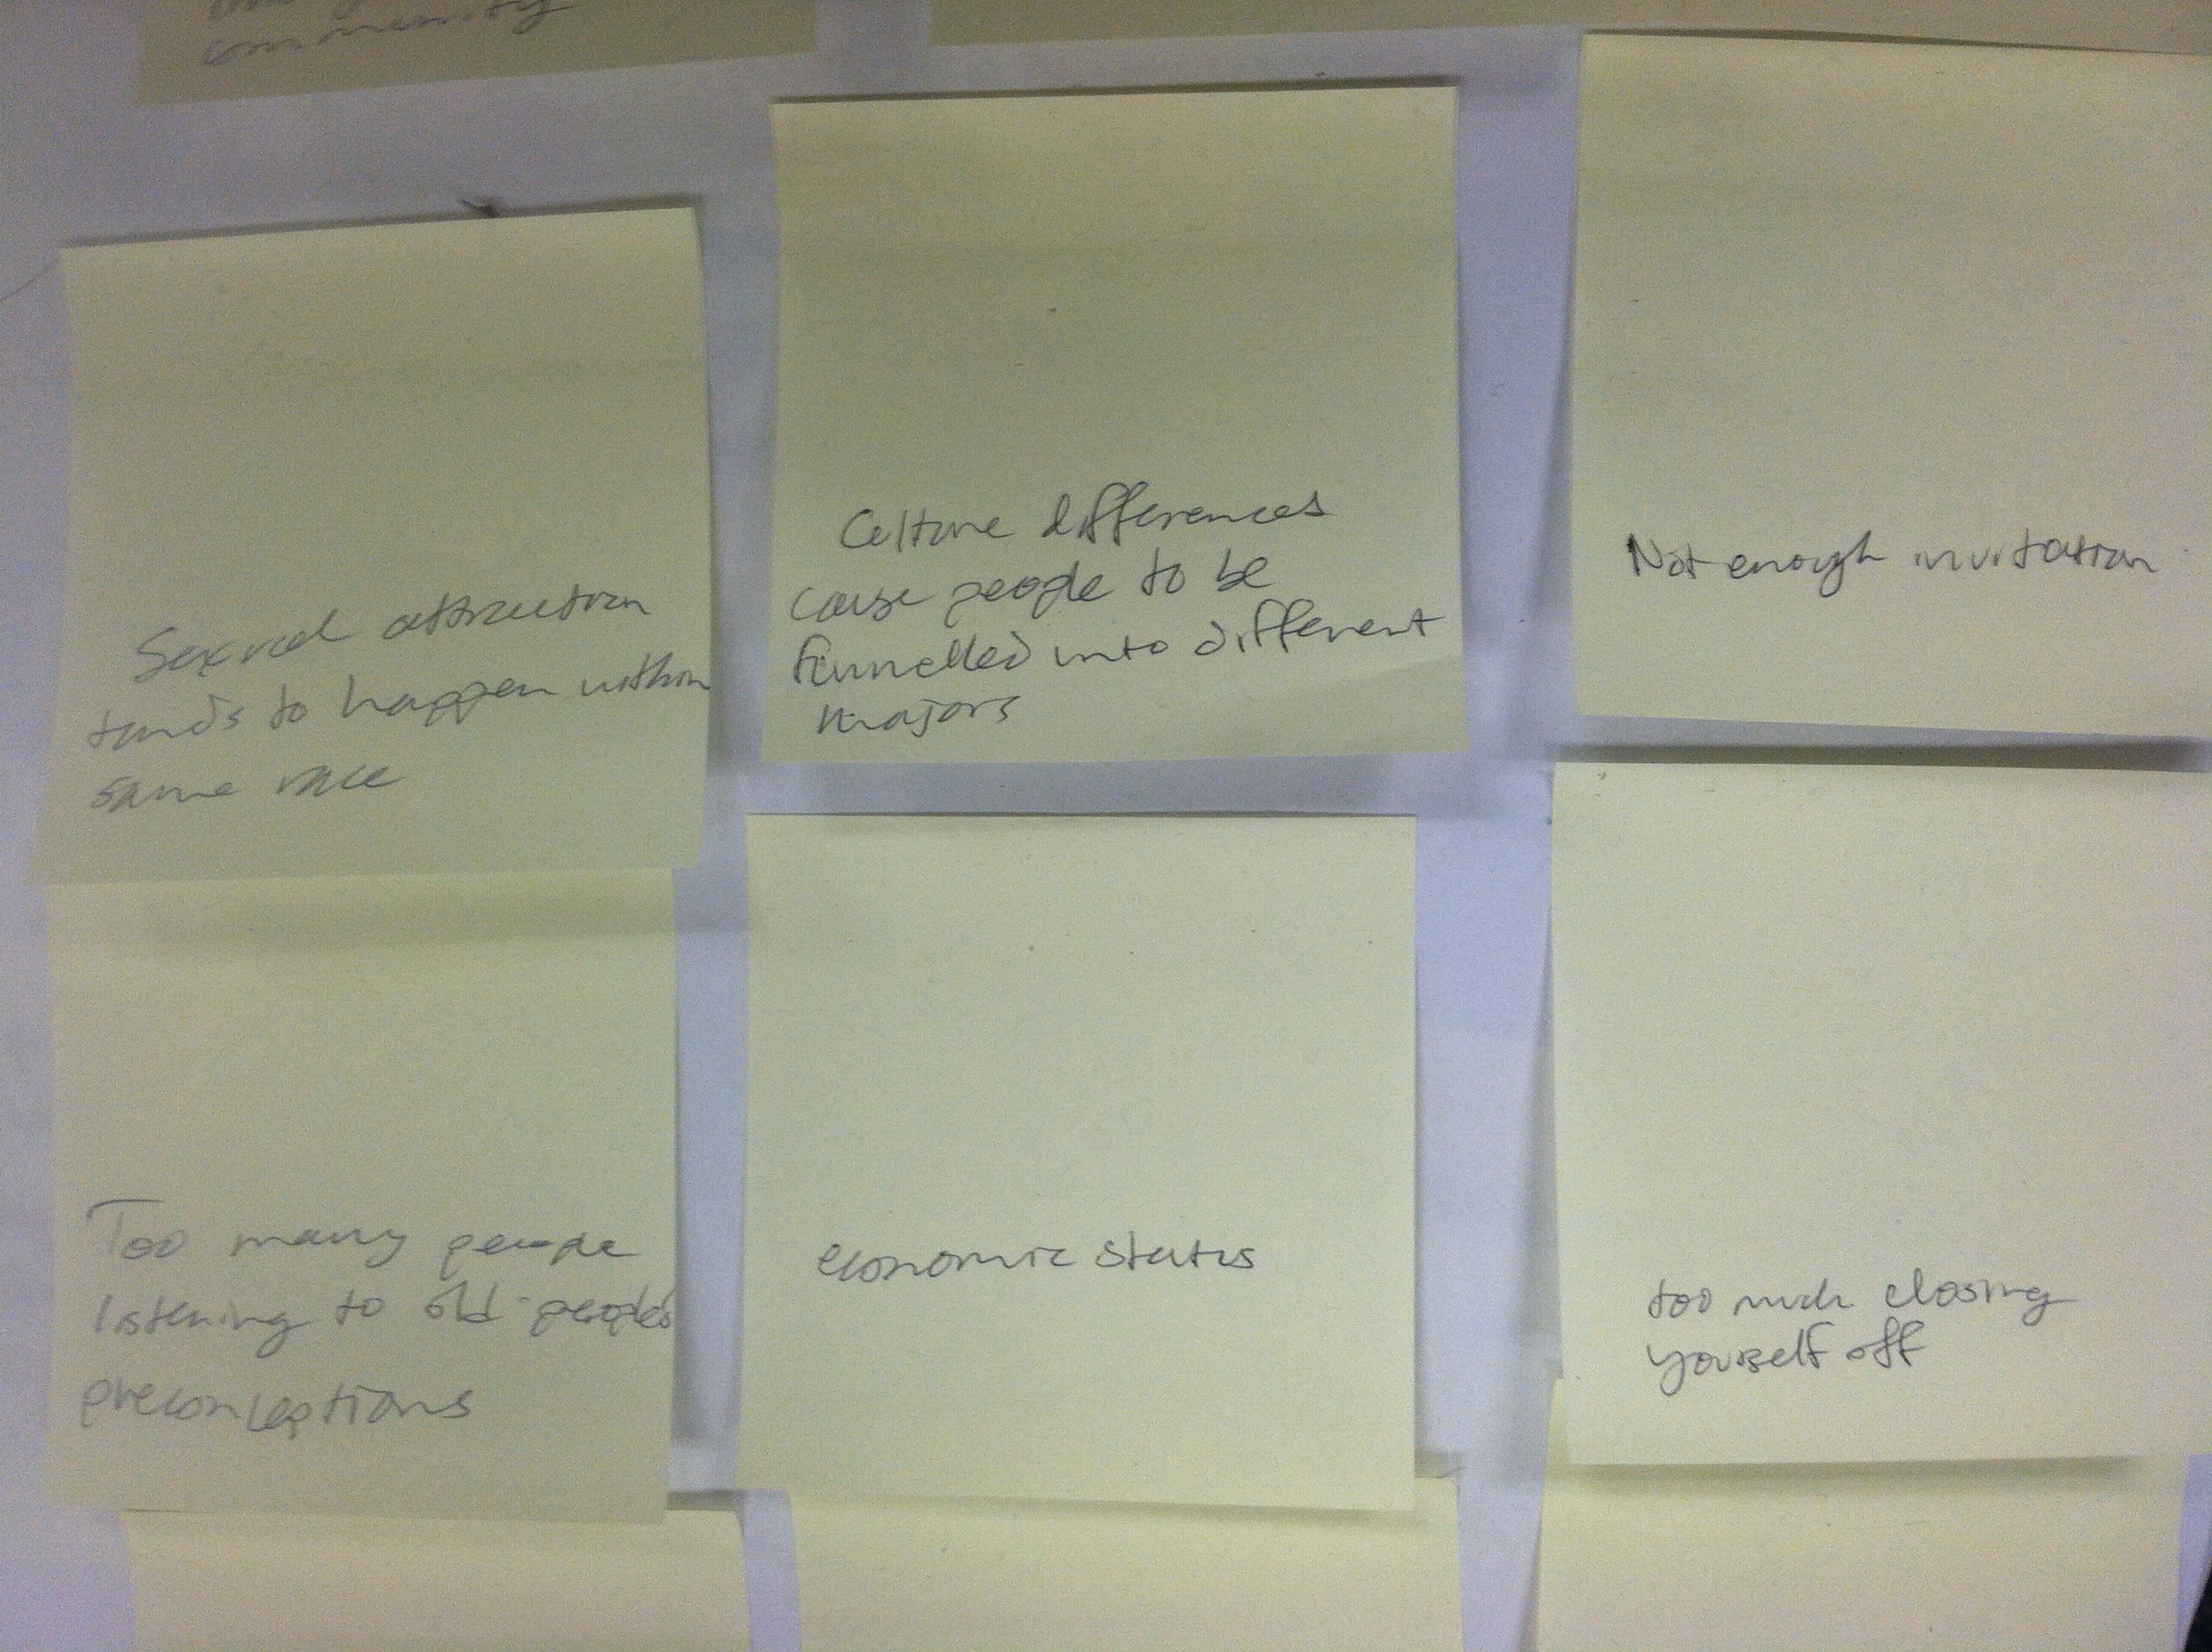 community
Sexual attraction
tends to happen within
same race
Culture differences
cause people to be
funnelled into different
majors
Not enough invitation
Too many people
listening to old people's
preconceptions
economic status
too much closing
yourself off